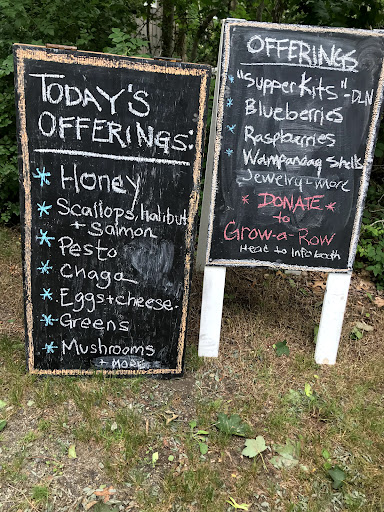 TODAY'S
OFFERINGS:
* Honey
* Scallops, Halibut
+ Salmon
* Pesto
* Chaga
* Eggs + cheese
* Greens
* Mushrooms
+ MORE
OFFERINGS
* "Supper Kits" - DLN
Blueberries
* Raspberries
* Wampanoag Shells
Jewelry + more
* DONATE *
to
Grow-a-Row
Head to Info booth